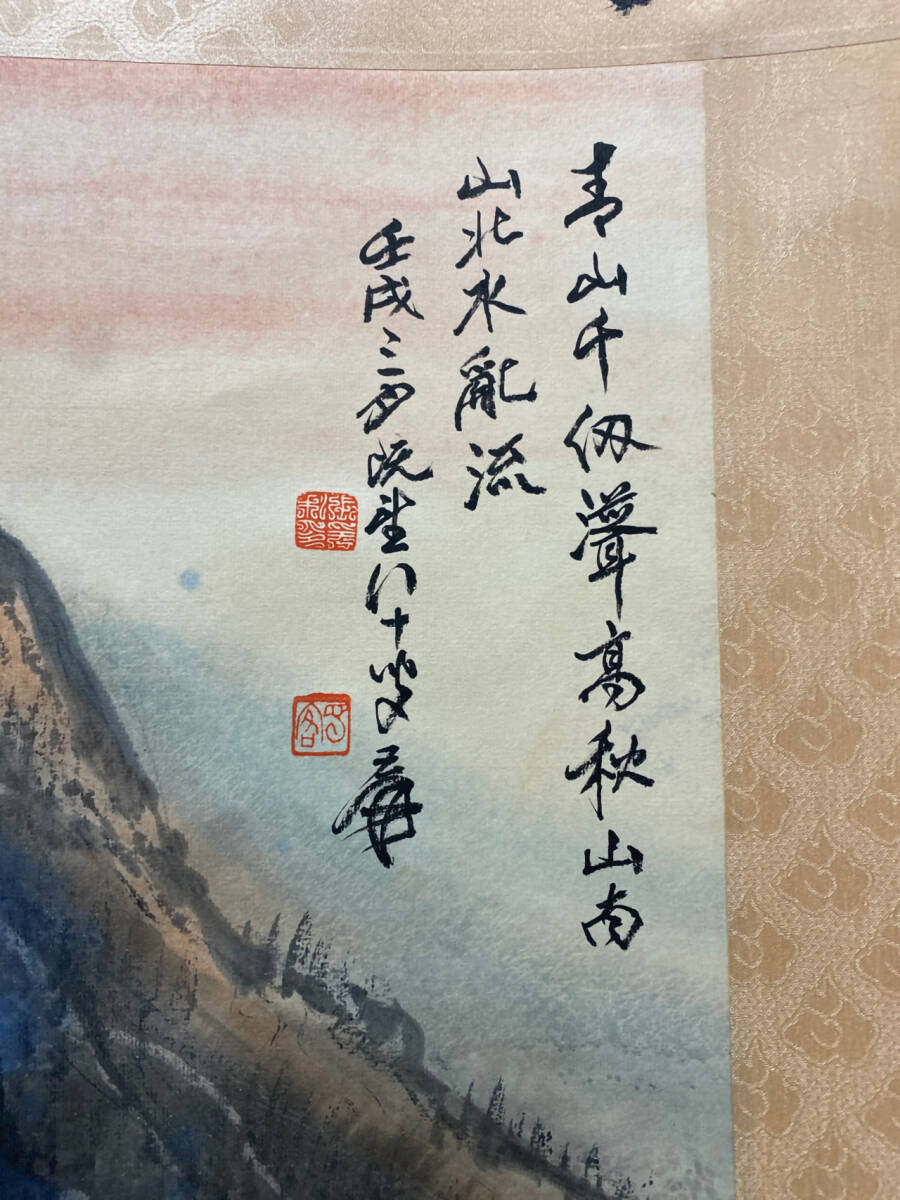 青山千仞聳高秋山南
山北水亂流
壬戌三月既望八十叟爰